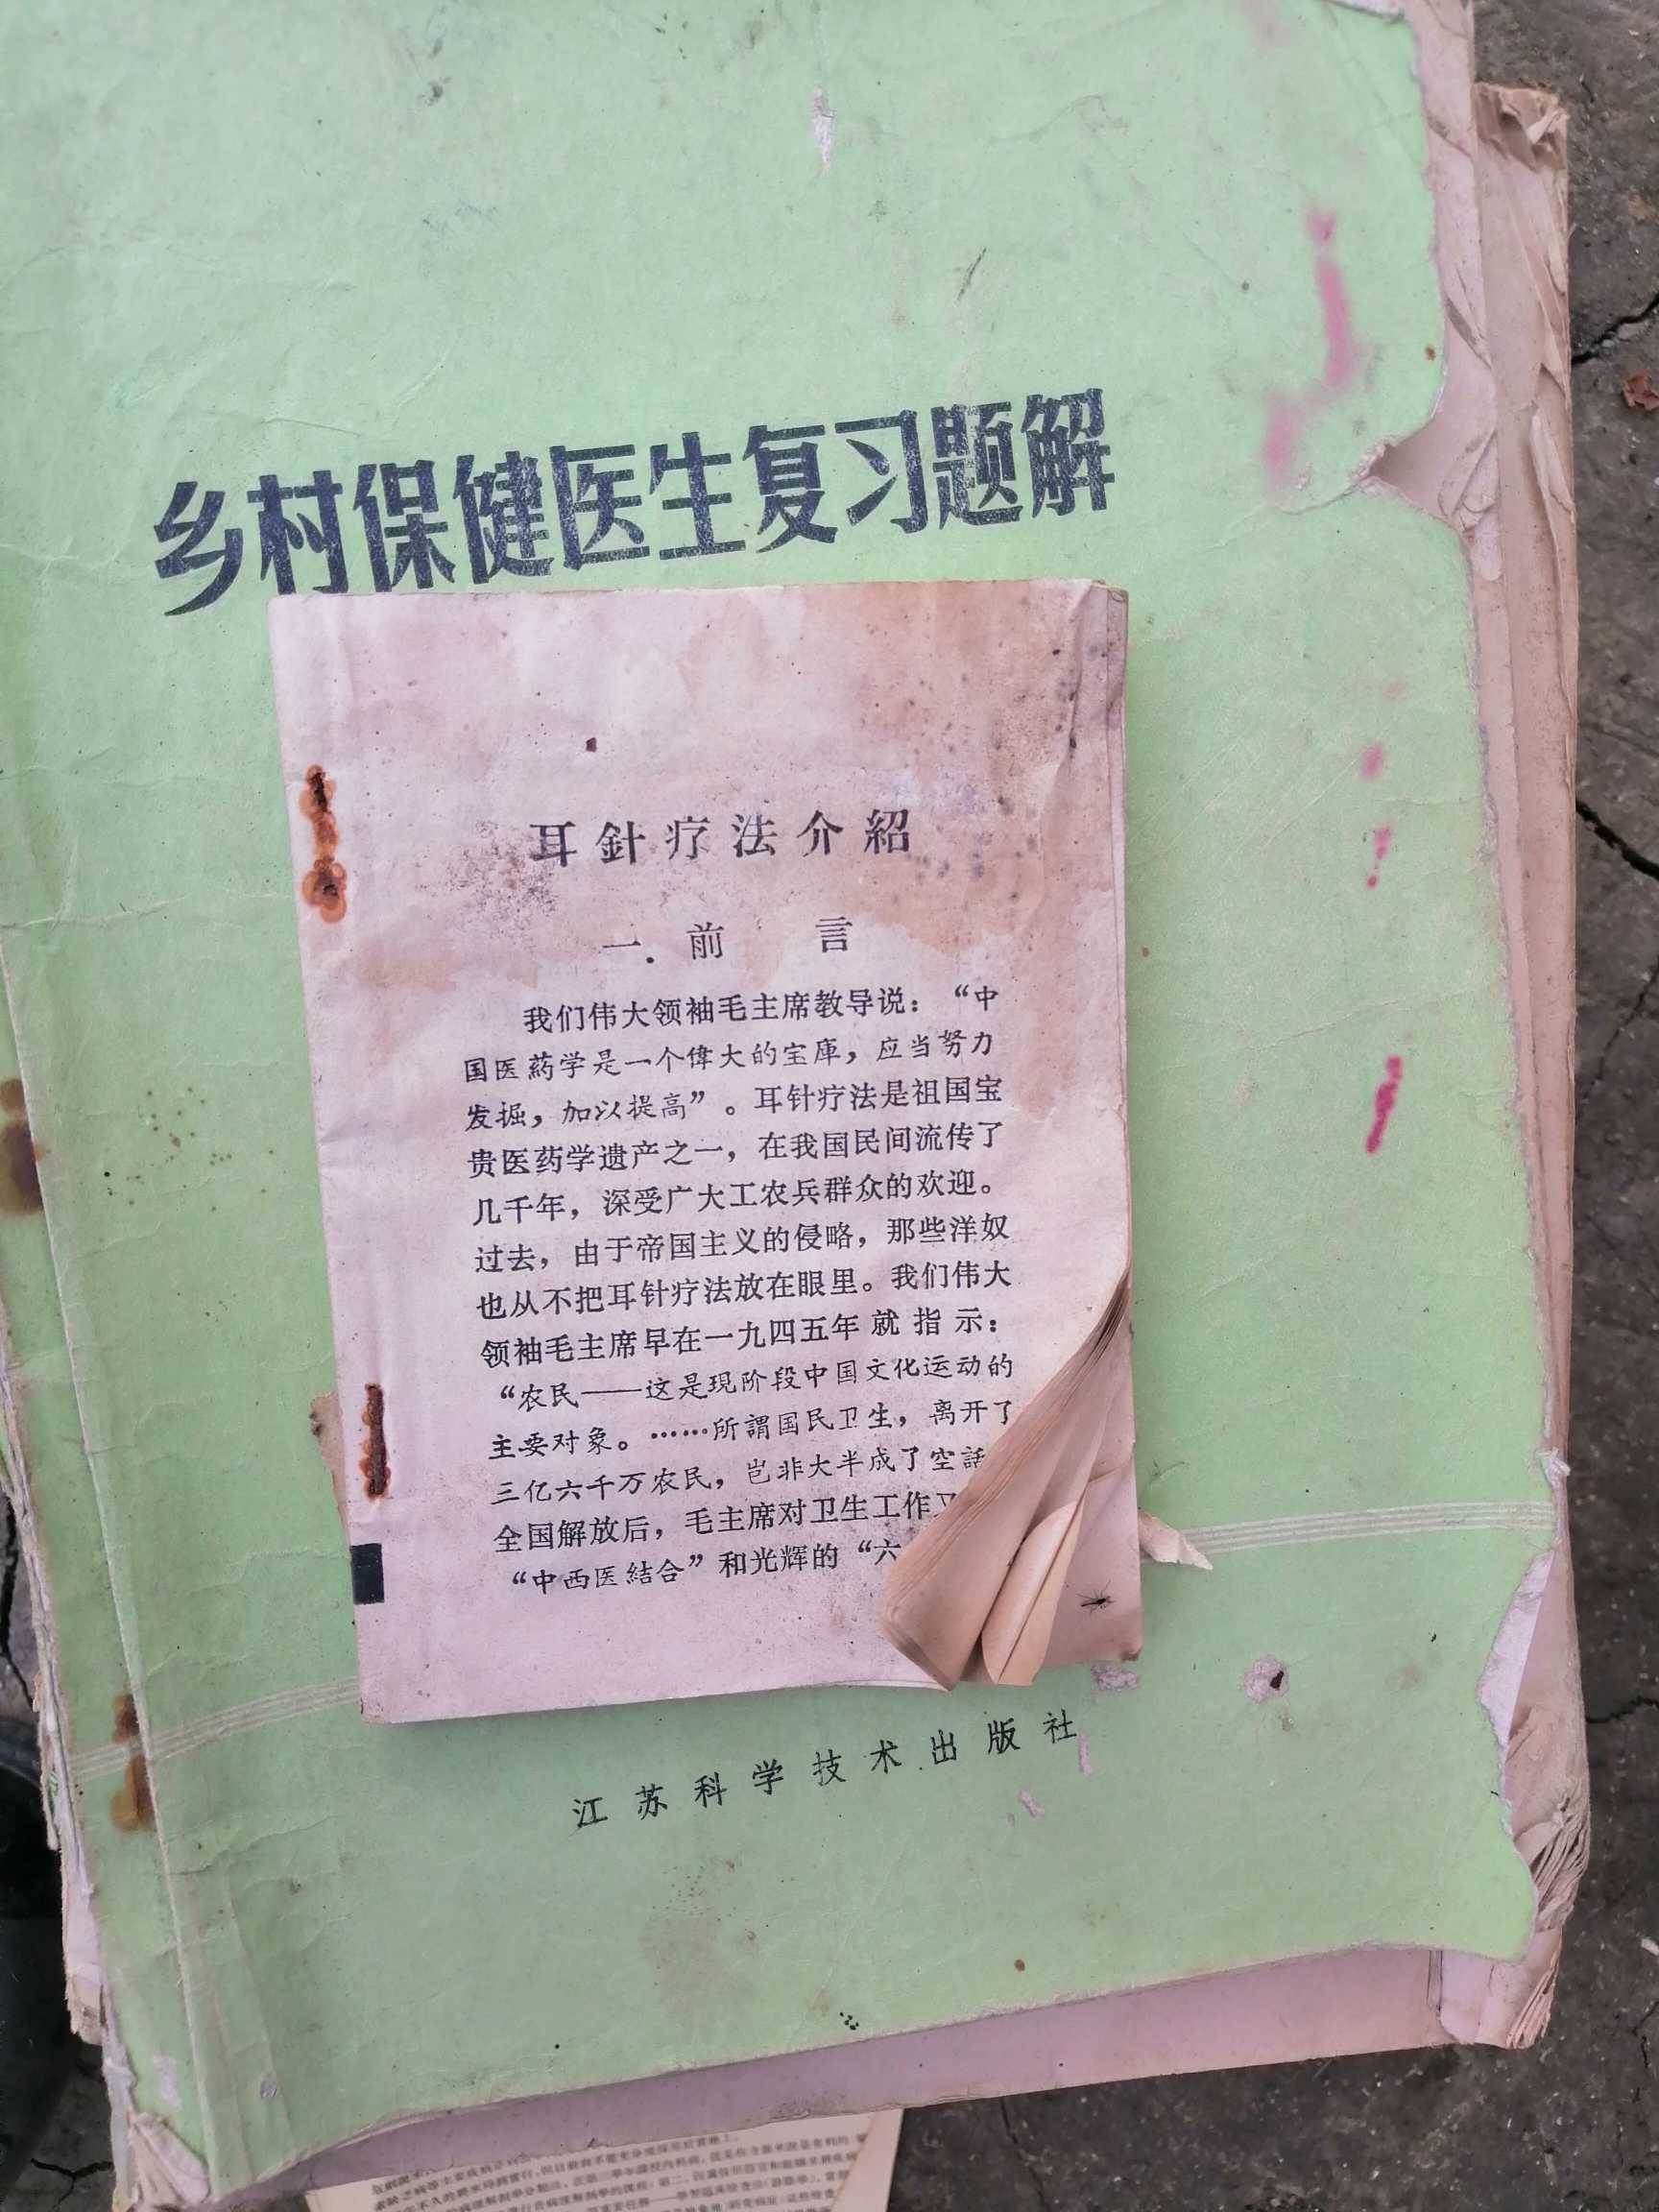 乡村保健医生复习题解
耳針疗法介紹
一．前　言
我们伟大领袖毛主席教导说：“中
国医葯学是一个偉大的宝庫，应当努力
发掘，加以提高”。耳针疗法是祖国宝
贵医药学遗产之一，在我国民间流传了
几千年，深受广大工农兵群众的欢迎。
过去，由于帝国主义的侵略，那些洋奴
也从不把耳针疗法放在眼里。我们伟大
领袖毛主席早在一九四五年就指示：
“农民——这是現阶段中国文化运动的
主要对象。……所謂国民卫生，离开了
三亿六千万农民，岂非大半成了空話
全国解放后，毛主席对卫生工作又
“中西医結合”和光辉的“六
江苏科学技术出版社